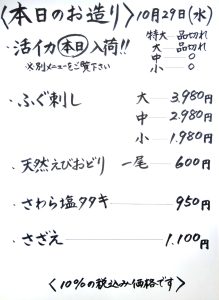 〈本日のお造り〉10月29日(水)
・活イカ 本日 入荷!! 特大 ― 品切れ
大 ― 品切れ
※別メニューをご覧下さい 中 ― 〇
小 ― 〇
・ふぐ刺し 大 ― 3.980円
中 ― 2.980円
小 ― 1.980円
・天然えびおどり 一尾 ― 600円
・さわら塩タタキ ― 950円
・さざえ ― 1.100円
〈10%の税込み価格です〉